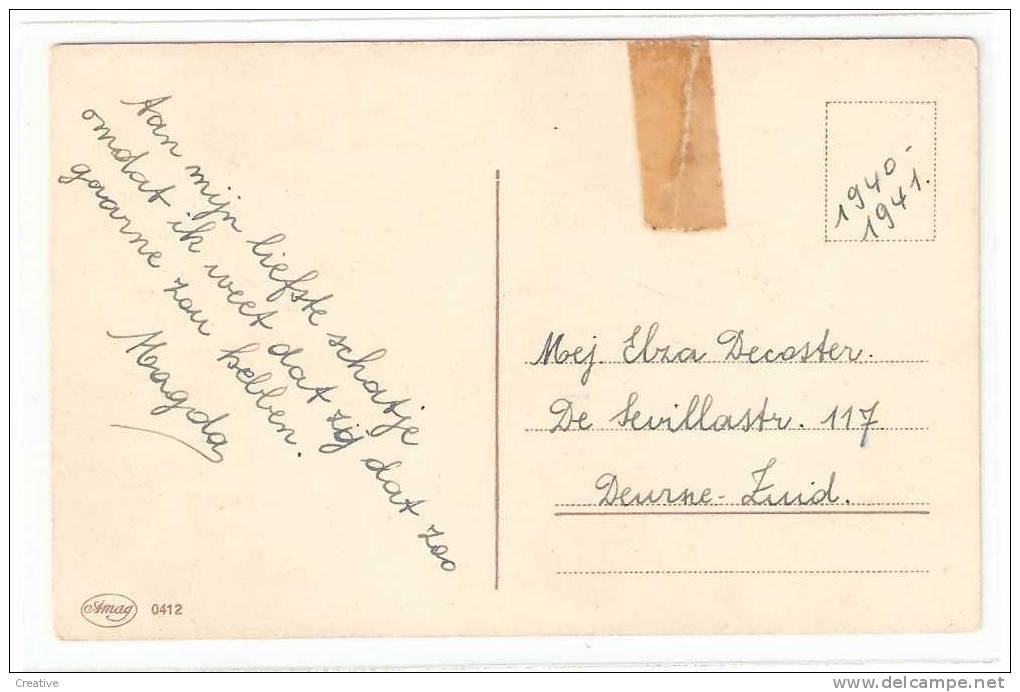 Aan mijn liefste schatje
omdat ik weet dat zij dat zoo
gaarne zou hebben.
Magda
1940-
1941.
Mej. Elza Decoster.
De Sevillastr. 117.
Deurne-Zuid.
Amag 0412
Creative
www.delcampe.net